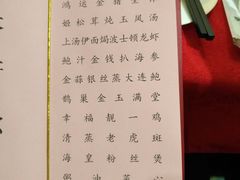 鸿运金猪全体
姬松茸炖玉凤汤
上汤伊面焗波士顿龙虾
鲍汁金钱扒海参
金蒜银丝蒸大连鲍
鹊巢金玉满堂
幸福靓一鸡
清蒸老虎斑
海皇粉丝煲